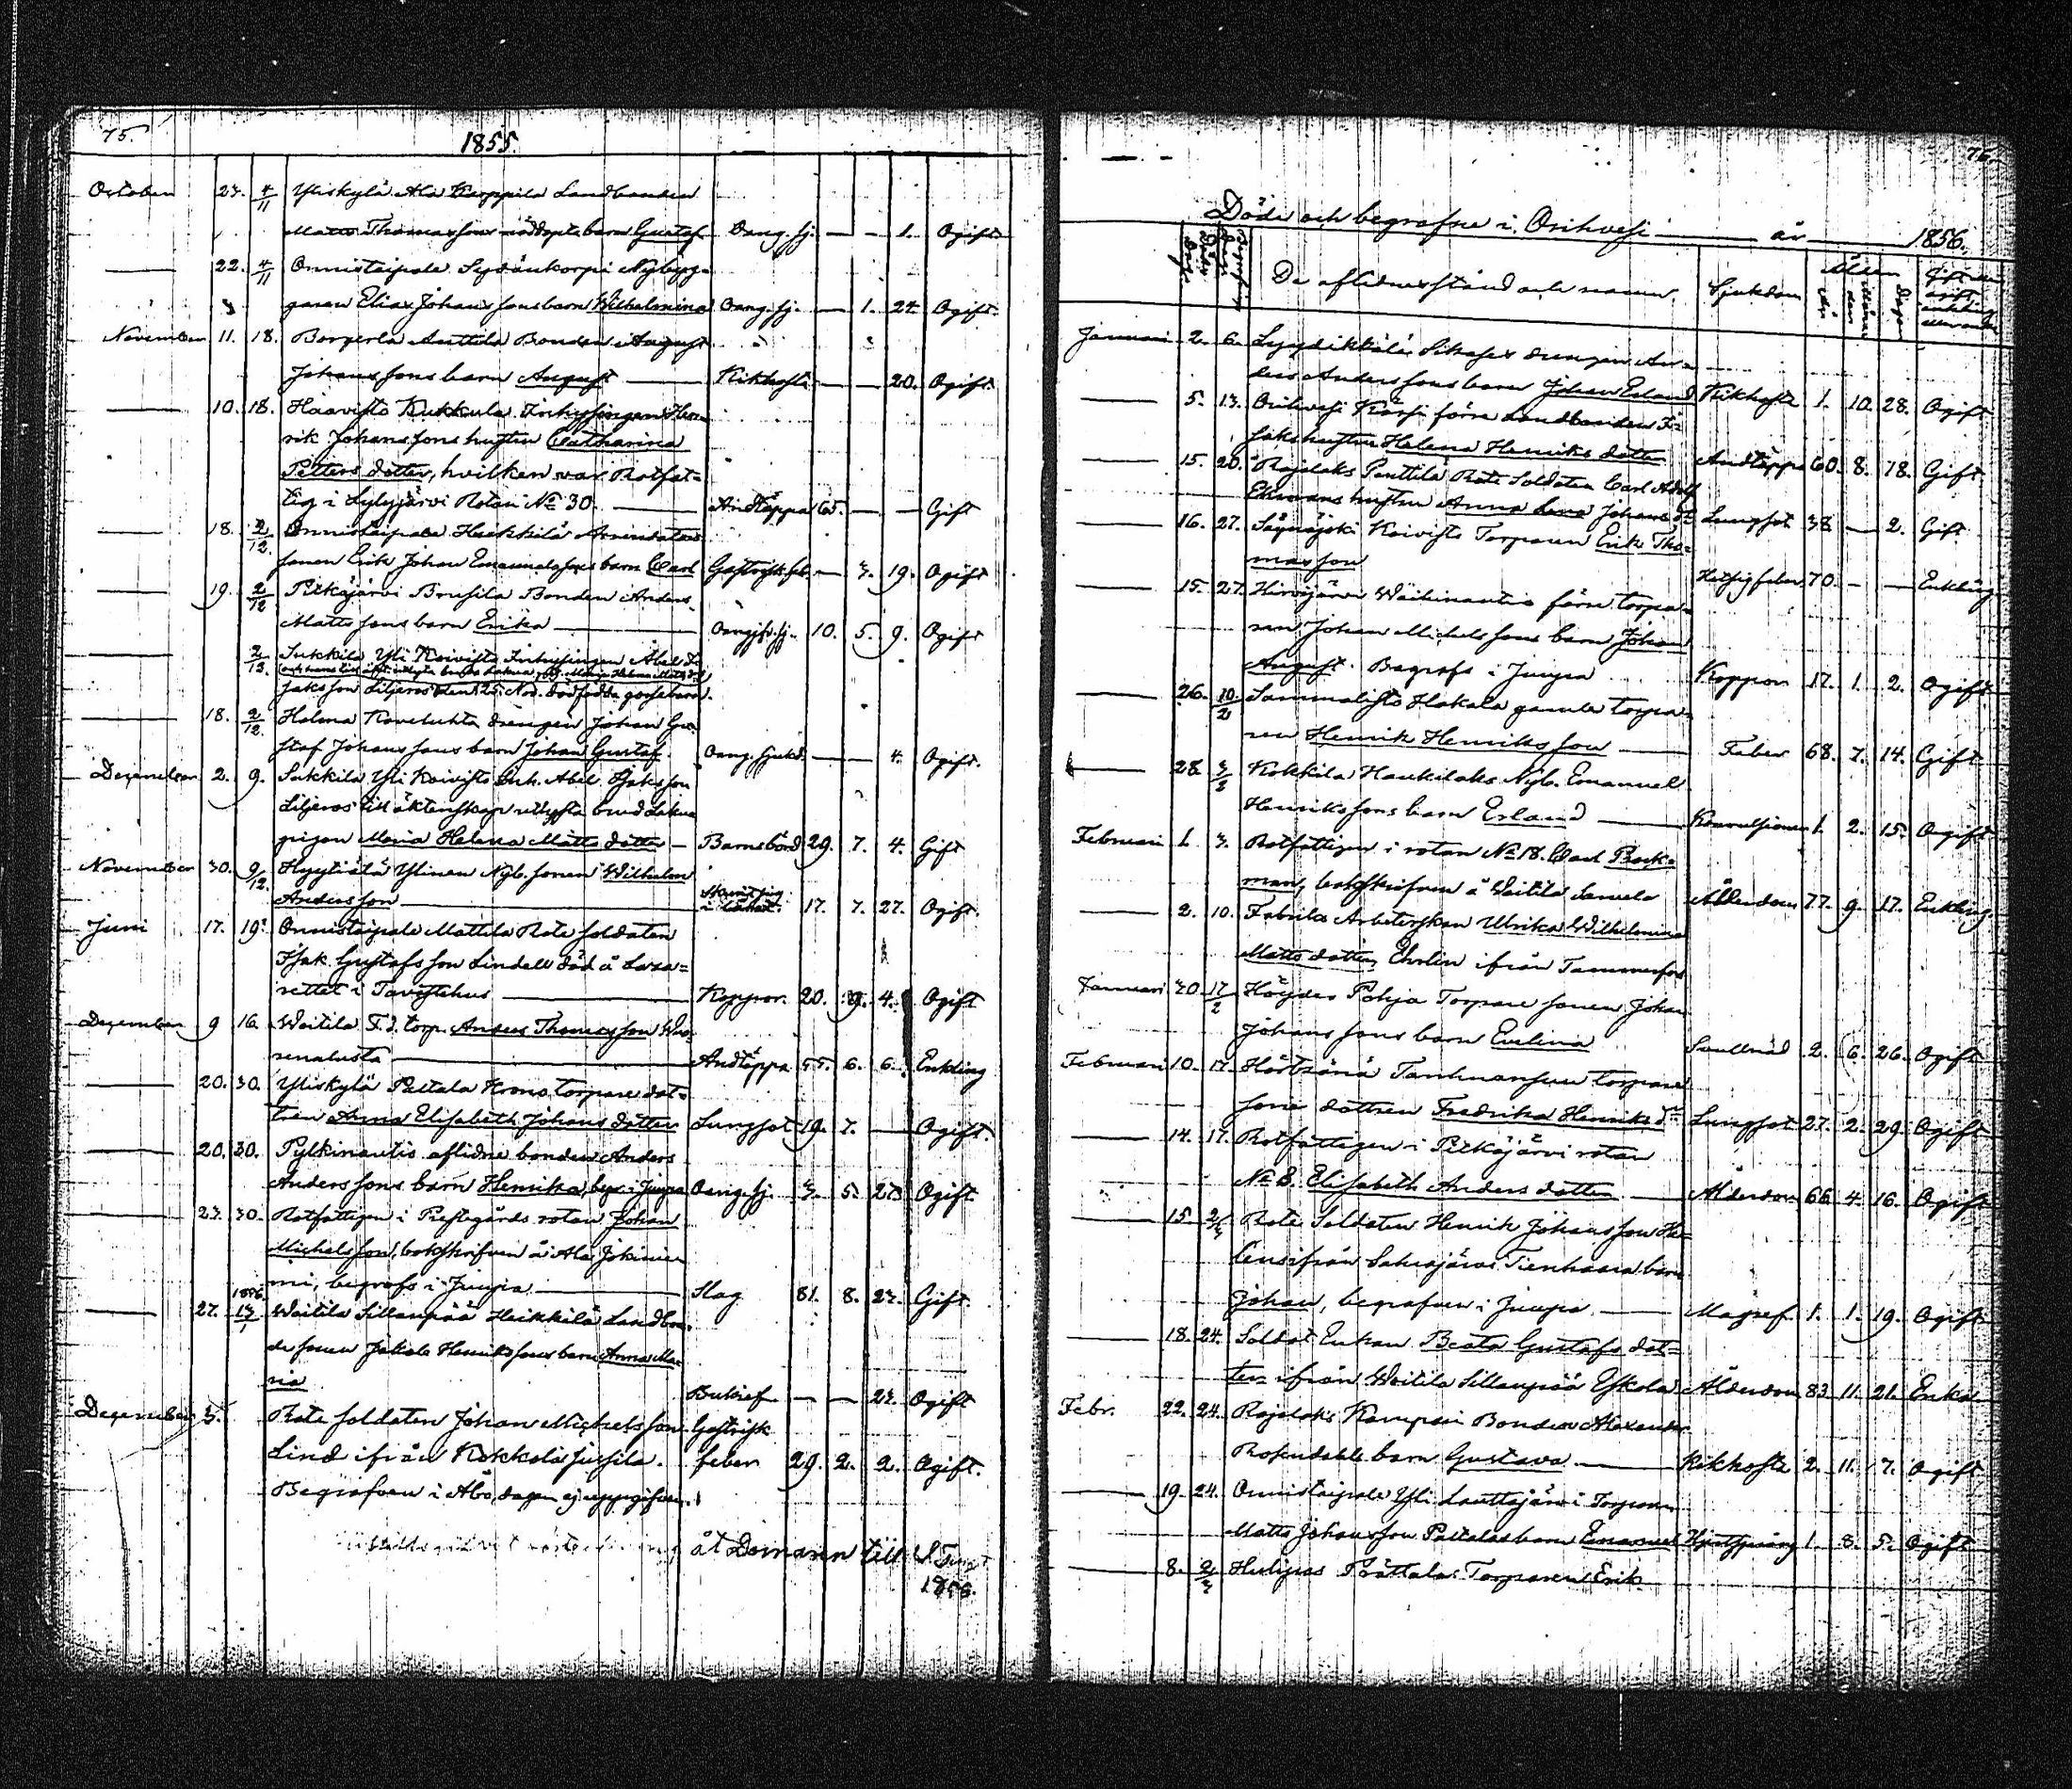 75.
1855.
October 23. 4/11 Yliskylä Ala Karppila Landbonden
Matts Thomassons nöddöpta barn Gustaf Oang. sj. — — 1. Ogift
22. 4/11 Onnistaipale Sydänkorpi Nybyg-
garen Elias Johanssons barn Wilhelmina Oang. sj. — 1. 24. Ogift
November 11. 18. Borgerla Anttila Bonden August
Johanssons barn August — Kikhosta — — 20. Ogift
10. 18. Haavisto Kukkula Inhysingen Hen-
rik Johanssons hustru Catharina
Petters dotter, hvilken var Rotfat-
tig i Lylyjärvi Rotan No 30. Andtäppa 65. — — Gift
18. 2/12 Onnistaipale Heikkilä
sonen Erik Johan Emanuelssons barn Carl Gastrisk feb. — 3. 19. Ogift
19. 2/12 Pitkäjärvi Brusila Bonden Anders
Mattssons barn Erika — Oangifv. sj. 10. 5. 9. Ogift
2/12 Sukkila Yli Koivisto Inhysingen Abel I-
Maria Helena Matts dr
saksson Liljeros den 25 Nov. dödfödda gossebarn.
18. 2/12 Holma Koveluhta drengen Johan Gu-
staf Johanssons barn Johan Gustaf. Oang. Sjukd. — — 4. Ogift.
December 2. 9. Sukkila Yli Koivisto Inh. Abel Isaksson
Liljeros till äktenskap utlysta brud
pigan Maria Helena Matts dotter — Barnsbörd 29. 7. 4. Gift
November 30. 9/12. Hyytiälä Ylinen Nyb. sonen Wilhelm
Andersson — 17. 7. 27. Ogift.
Juni 17. 19. Onnistaipale Mattila Rote soldaten
Isak Gustafsson Lindell död å Laza-
rettet i Tavastehus — Koppor. 20. 9. 4. Ogift
December 9 16. Waitila F.d. torp. Anders Thomasson
— Andtäppa 55. 6. 6. Enkling
20. 30. Yliskylä Paltala Krono torpare dot-
tren Anna Elisabeth Johans dotter Lungsot 19. 7. — Ogift.
20. 30. Pylkinautio aflidne bonden Anders
Anderssons barn Henrika, begr. i Juupa Oang. sj. 3. 5. 23. Ogift
23. 30. Rotfattigen i Prestegårds rotan Johan
Michelsson, bokskrifven å Ala Jokinie-
mi, begrafs i Juupa — Slag 81. 8. 23. Gift.
1856
27. 13/1 Waitila Sillanpää Heikkilä Landbon-
de sonen Jakob Henrikssons barn Anna Ma-
ria Bukref — — 23. Ogift
December 5. Rote soldaten Johan Michelsson Gastrisk
Lind ifrån Kokkola Jussila. feber 29. 2. 2. Ogift.
Begrafven i Åbo, dagen ej uppgifven.
åt Domaren till
1856.
76.
Döde och begrafne i Orihvesi — år — 1856.
De aflidnes stånd och namn. Sjukdom Ålder
Januari 2. 6. Lyydikkälä drengen An-
ders Anderssons barn Johan Erland Kikhosta 1. 10. 28. Ogift
5. 13. Orihvesi Kärsi förre Landbonden I-
saks hustru Helena Henriks dotter Andtäppa 60. 8. 18. Gift
15. 20. Rajalaks Penttilä Rote Soldaten Carl Adolf
Ekmans hustru Anna Lena Johans dr Lungsot 38 — 2. Gift
16. 27. Säynäjoki Koivisto Torparen Erik Tho-
masson Hetsig feber 70. — — Enkling
15. 27. Hirvijärvi Wäihinautio förre torpa-
ren Johan Michelssons barn Johan
August. Begrafs i Juupa Koppor 17. 1. 2. Ogift
26. 10/2 Sammalisto Hakala gamle torpa-
ren Henrik Henriksson — Feber 68. 7. 14. Gift
28. 3/2 Kokkila Haukilaks Nyb. Emanuel
Henrikssons barn Erland — Konvulsioner 1. 2. 15. Ogift
Februari 1. 3. Rotfattigen i rotan No 18. Carl Back-
man, bokskrifven å Waitila Samula Ålderdom 77. 9. 17. Enkling
2. 10. Fabriks Arbeterskan Ulrika Wilhelmina
Matts dotter Ehrlin ifrån Tammerfors
Januari 30 17/2 Höydes Pohja Torpare sonen Johan
Johanssons barn Evelina Svullnad 2. 6. 26. Ogift
Februari 10. 17. torpare
sone dottren Fredrika Henriks dr Lungsot 27. 2. 29. Ogift
14. 17. Rotfattigen i Pitkäjärvi rotan
No 8. Elisabeth Anders dotter — Ålderdom 66 4. 16. Ogift
15. 2/3 Rote Soldaten Henrik Johansson
ifrån Sahrajärvi Tienhaara barn
Johan, begrafven i Juupa — Magref 1. 1. 19. Ogift
18. 24. Soldat Enkan Beata Gustafs dot-
ter ifrån Waitila Sillanpää Eskola Ålderdom 83. 11. 21. Enka
Febr. 22. 24. Rajalaks Kamppi Bonden Alexander
Rosendahls barn Gustava — Kikhosta 2. 11. 17. Ogift
19. 24. Onnistaipale Yli Lauttajärvi Torparen
Matts Johansson Paltalas barn Emanuel 1. 8. 5. Ogift
8. 2/3 Hulipas Pättala Torparen Erik